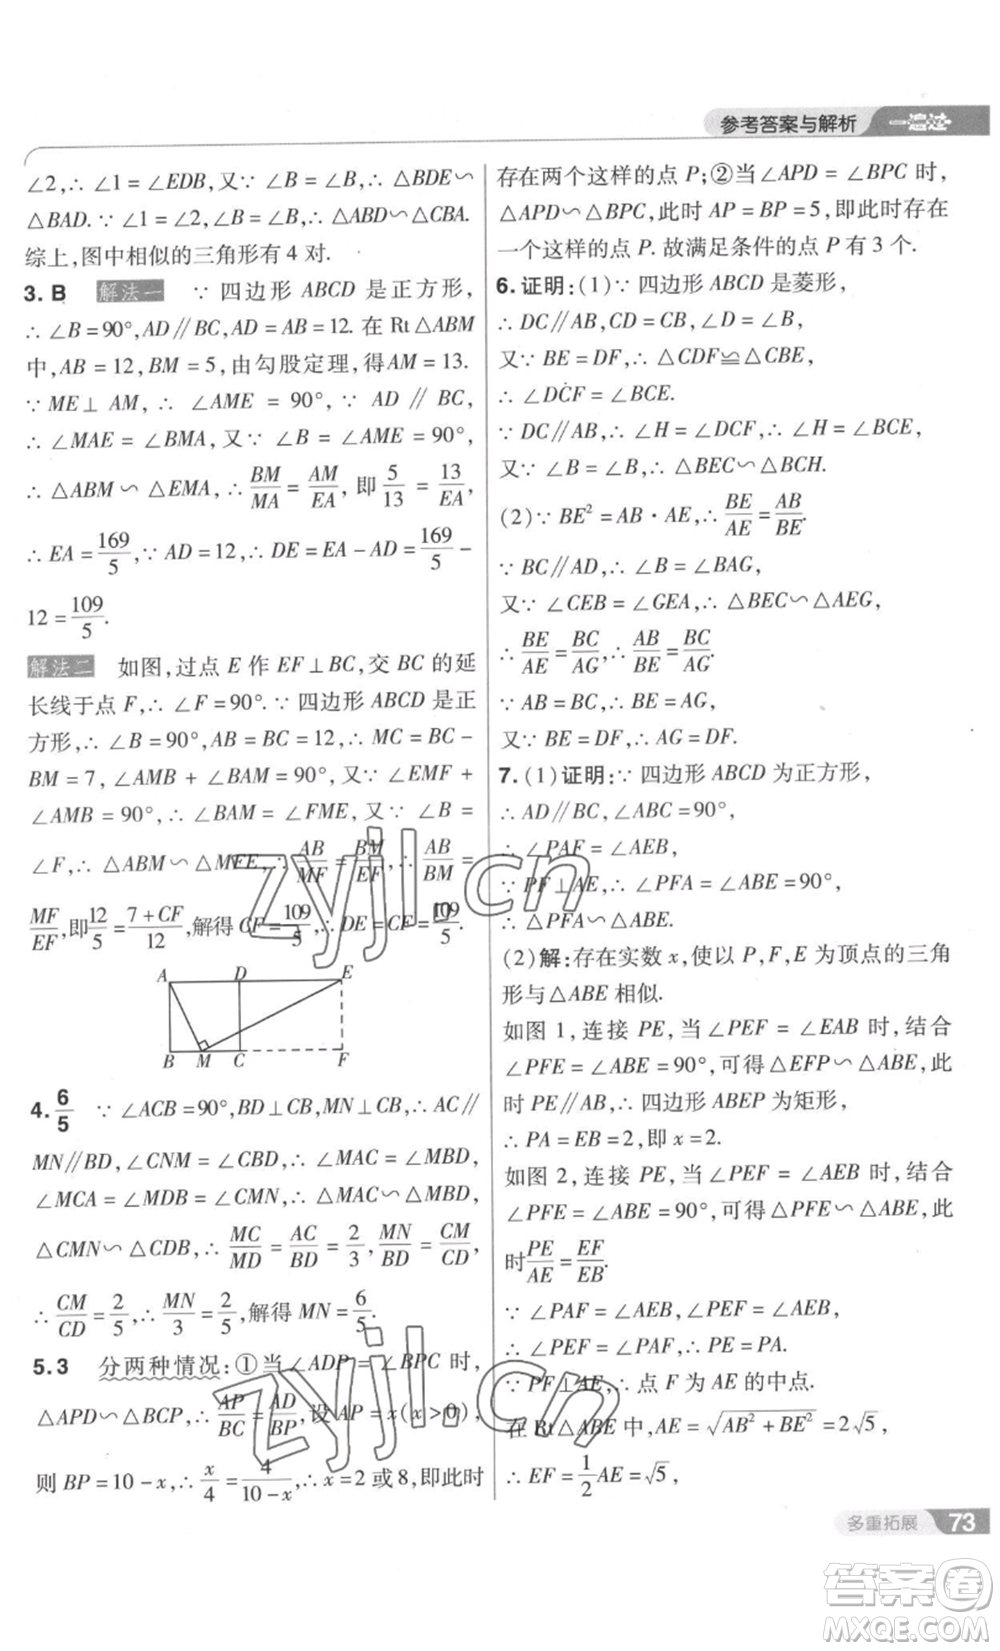 参考答案与解析 一遍过
∠2,∴ ∠1 = ∠EDB, 又∵ ∠B = ∠B,∴ △BDE∽
△BAD. ∵ ∠1 = ∠2,∠B = ∠B,∴ △ABD∽△CBA.
综上,图中相似的三角形有 4 对.
3. B 解法一 ∵ 四边形 ABCD 是正方形,
∴ ∠B = 90°,AD // BC,AD = AB = 12. 在 Rt△ABM
中,AB = 12,BM = 5,由勾股定理,得AM = 13.
∵ ME⊥AM,∴ ∠AME = 90°,∵ AD // BC,
∴ ∠MAE = ∠BMA,又∵ ∠B = ∠AME = 90°,
∴ △ABM ∽ △EMA,∴ BM/MA = AM/EA,即 5/13 = 13/EA,
∴ EA = 169/5,∵ AD = 12,∴ DE = EA − AD = 169/5 −
12 = 109/5.
解法二 如图,过点 E 作 EF⊥BC,交 BC 的延
长线于点 F,∴ ∠F = 90°.∵ 四边形 ABCD 是正
方形,∴ ∠B = 90°,AB = BC = 12,∴ MC = BC −
BM = 7,∠AMB + ∠BAM = 90°.∵ ∠EMF +
∠AMB = 90°,∴ ∠BAM = ∠FME,又∵ ∠B =
∠F,∴ △ABM∽△MFE,∴ AB/MF = BM/EF,∴ AB/BM =
MF/EF,即 12/5 = (7 + CF)/12,解得 CF = 109/5,∴ DE = CF = 109/5.
A D E
B M C F
4. 6/5 ∵ ∠ACB = 90°,BD⊥CB,MN⊥CB,∴ AC //
MN // BD,∠CNM = ∠CBD,∴ ∠MAC = ∠MBD,
∠MCA = ∠MDB = ∠CMN,∴ △MAC∽△MBD,
△CMN∽△CDB,∴ MC/MD = AC/BD = 2/3,MN/BD = CM/CD,
∴ CM/CD = 2/5,∴ MN/3 = 2/5,解得 MN = 6/5.
5. 3 分两种情况:①当 ∠ADP = ∠BPC 时,
△APD∽△BCP,∴ AP/BC = AD/BP,设 AP = x(x > 0),
则 BP = 10 − x,∴ x/4 = 4/(10 − x),∴ x = 2 或 8,即此时
存在两个这样的点 P;②当 ∠APD = ∠BPC 时,
△APD∽△BPC,此时 AP = BP = 5,即此时存在
一个这样的点 P. 故满足条件的点 P 有 3 个.
6. 证明:(1)∵ 四边形 ABCD 是菱形,
∴ DC // AB,CD = CB,∠D = ∠B,
又∵ BE = DF,∴ △CDF≌△CBE,
∴ ∠DCF = ∠BCE.
∵ DC // AB,∴ ∠H = ∠DCF,∴ ∠H = ∠BCE,
又∵ ∠B = ∠B,∴ △BEC∽△BCH.
(2)∵ BE² = AB · AE,∴ BE/AE = AB/BE.
∵ BC // AD,∴ ∠B = ∠BAG,
又∵ ∠CEB = ∠GEA,∴ △BEC∽△AEG,
∴ BE/AE = BC/AG,∴ AB/BE = BC/AG.
∵ AB = BC,∴ BE = AG,
又∵ BE = DF,∴ AG = DF.
7. (1)证明:∵ 四边形 ABCD 为正方形,
∴ AD // BC,∠ABC = 90°,
∴ ∠PAF = ∠AEB,
∵ PF⊥AE,∴ ∠PFA = ∠ABE = 90°,
∴ △PFA∽△ABE.
(2)解:存在实数 x,使以 P,F,E 为顶点的三角
形与△ABE 相似.
如图 1,连接 PE,当 ∠PEF = ∠EAB 时,结合
∠PFE = ∠ABE = 90°,可得△EFP∽△ABE,此
时 PE // AB,∴ 四边形 ABEP 为矩形,
∴ PA = EB = 2,即 x = 2.
如图 2,连接 PE,当 ∠PEF = ∠AEB 时,结合
∠PFE = ∠ABE = 90°,可得△PFE∽△ABE,此
时 PE/AE = EF/EB.
∵ ∠PAF = ∠AEB,∠PEF = ∠AEB,
∴ ∠PEF = ∠PAF,∴ PE = PA.
∵ PF⊥AE,∴ 点 F 为 AE 的中点.
在 Rt△ABE 中,AE = √(AB² + BE²) = 2√5,
∴ EF = 1/2 AE = √5,
多重拓展 73
zyjl.cn
zyjl.cn
答案圈
MXQE.COM